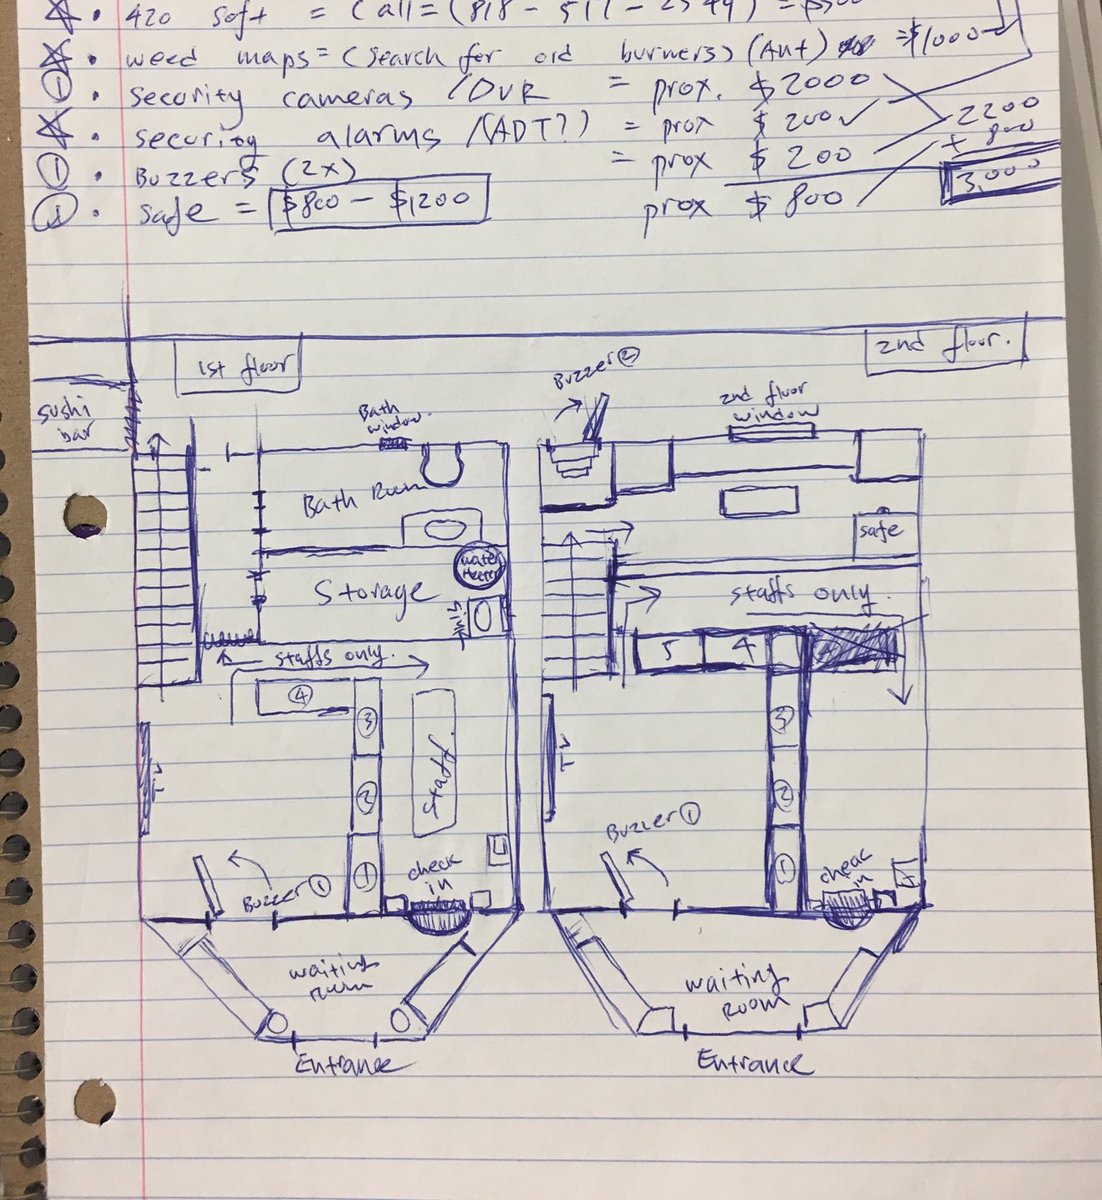 . 420 soft = Call = (818 -
. weed maps = (search for old burners) (Ant) = $1000
① . security cameras / DVR = prox. $2000
. security alarms / (ADT?) = prox $200 ✓
① . Buzzers (2x) = prox $200
① . safe = $800 - $1200 prox $800
2200
+ 800
3,000
1st floor
2nd floor.
sushi bar
Bath window.
Buzzer ②
2nd floor window
Bath Room
safe
water Heater
Storage
sink
staffs only.
staffs only.
④
5 4
③
②
①
staff.
TV
③
②
①
TV
Buzzer ①
check in
Buzzer ①
check in
waiting room
waiting Room
Entrance
Entrance